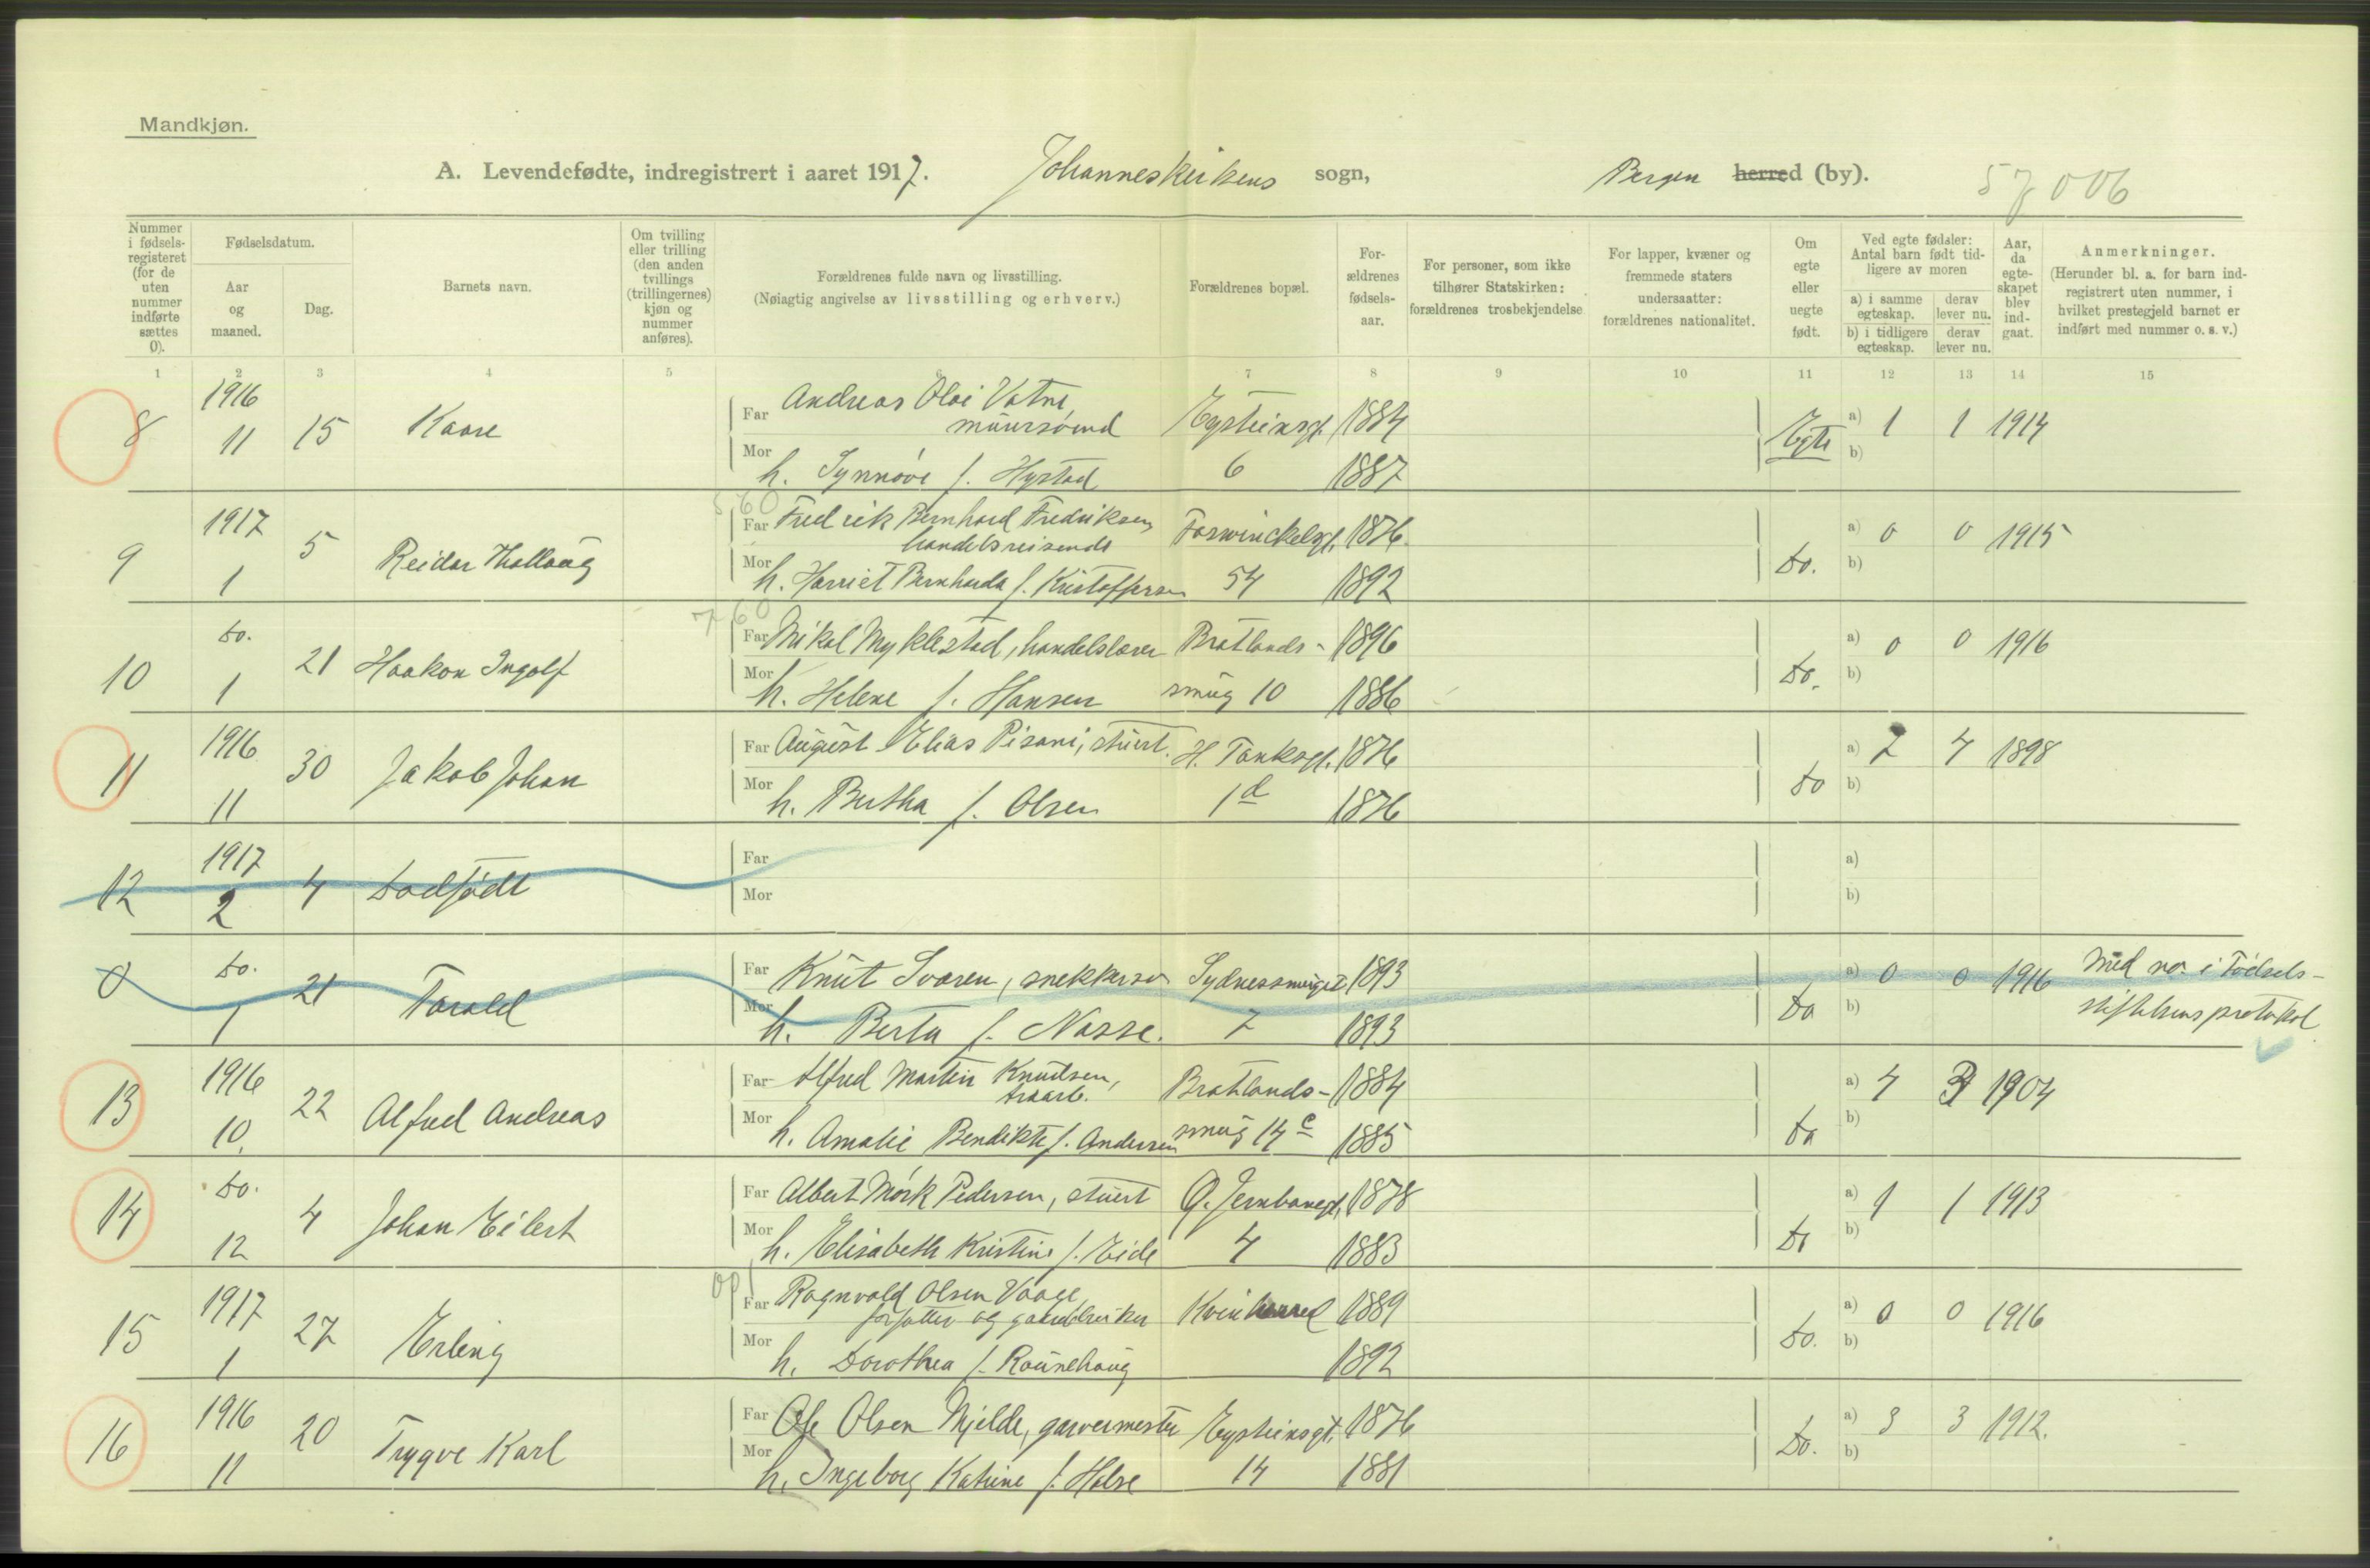 Mandkjøn.
A. Levendefødte, indregistrert i aaret 1917. Johanneskirkens sogn, Bergen herred (by). 57006
Nummer i fødsels-registeret (for de uten nummer indførte sættes 0).
Fødselsdatum.
Aar og maaned.
Dag.
Barnets navn.
Om tvilling eller trilling (den anden tvillings (trillingernes) kjøn og nummer anføres).
Forældrenes fulde navn og livsstilling.
(Nøiagtig angivelse av livsstilling og erhverv.)
Forældrenes bopæl.
For-ældrenes fødsels-aar.
For personer, som ikke tilhører Statskirken: forældrenes trosbekjendelse
For lapper, kvæner og fremmede staters undersaatter: forældrenes nationalitet.
Om egte eller uegte født.
Ved egte fødsler: Antal barn født tid-ligere av moren
a) i samme egteskap.
derav lever nu.
b) i tidligere egteskap.
derav lever nu.
Aar, da egte-skapet blev ind-gaat.
Anmerkninger.
(Herunder bl. a. for barn ind-registrert uten nummer, i hvilket prestegjeld barnet er indført med nummer o. s. v.)
1 2 3 4 5 6 7 8 9 10 11 12 13 14 15
8 1916 11 15 Kaare
Far Andreas Olai Vatne, muursvend Eysteinsgt. 1884
Mor h. Synnøve f. Hystad 6 1887
Egte a) 1 1 1914
b)
9 1917 1 5 Reidar Thollaug
Far Fredrik Bernhard Fredriksen, handelsreisende Foswinckelsgt. 1876.
Mor h. Harriet Bernharda f. Kristoffersen 54 1892
Do. a) 0 0 1915
b)
10 Do. 1 21 Haakon Ingolf
Far Mikal Myklestad, handelslærer Bratlands- 1896
Mor h. Helene f. Hansen smug 10 1886
Do. a) 0 0 1916
b)
11 1916 11 30 Jakob Johan
Far August Elias Pisani, stuert. H. Tanksgt. 1876
Mor h. Bertha f. Olsen 1d 1876
Do a) 7 4 1898
b)
12 1917 2 4 Dødfødt
Far
Mor
a)
b)
0 Do. 1 21 Torald
Far Knut Svaren, snekkersv Sydnessmuget 1893
Mor h. Berta f. Nasse. 7 1893
Do a) 0 0 1916 Med no. i Fødsels-
b) stiftelsens protokol
13 1916 10. 22 Alfred Andreas
Far Alfred Martin Knudsen, traarb. Bratlands- 1884
Mor h. Amalie Bendikte f. Andersen smug 14c 1885
Do a) 4 3 1904
b)
14 Do. 12 4 Johan Eilert
Far Albert Mörk Pedersen, stuert G. Jernbanegt. 1878
Mor h. Elisabeth Kristine f. Eide 4 1883
Do a) 1 1 1913
b)
15 1917 1 27 Erling
Far Ragnvald Olsen Vaage, forfatter og gaardbruker Kvinherred 1889
Mor h. Dorothea f. Raunehaug 1892
Do. a) 0 0 1916
b)
16 1916 11 20 Trygve Karl
Far Ole Olsen Mjelde, garvermester Eysteinsgt. 1876
Mor h. Ingeborg Katrine f. Holse 14 1881
Do. a) 3 3 1912.
b)